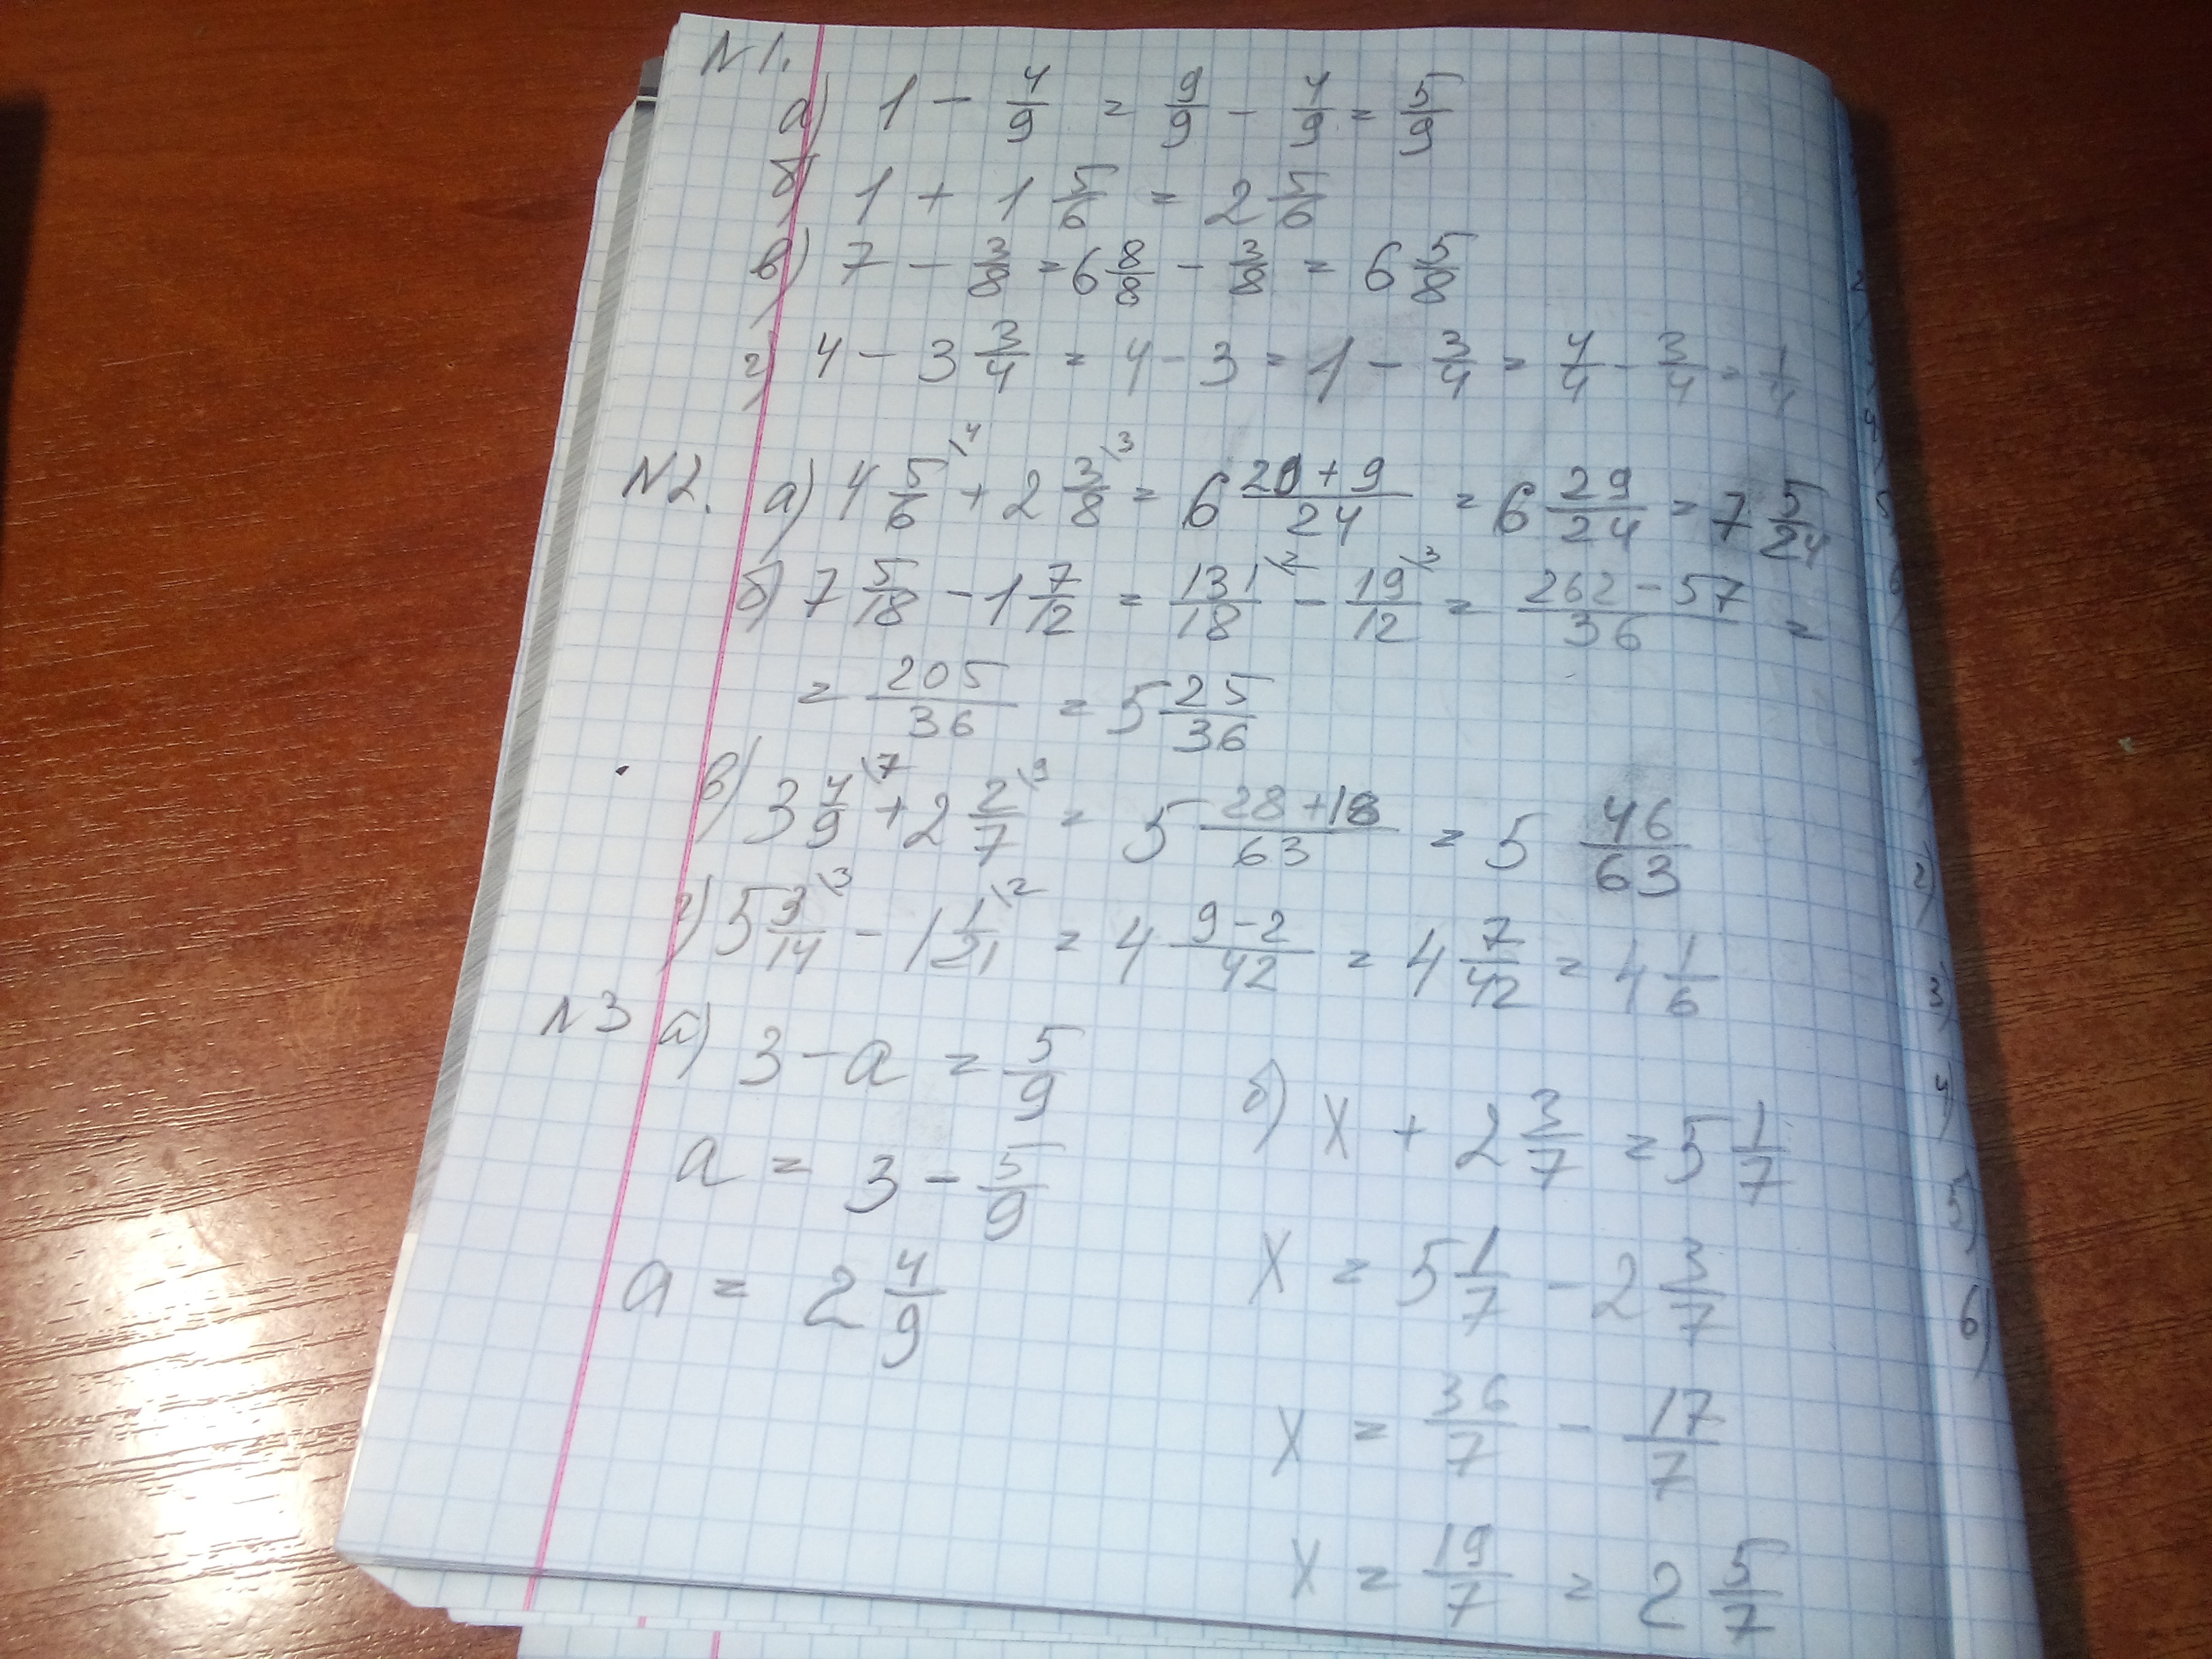 N1.
а) 1 - 4/9 = 9/9 - 4/9 = 5/9
б) 1 + 1 5/6 = 2 5/6
в) 7 - 3/8 = 6 8/8 - 3/8 = 6 5/8
г) 4 - 3 3/4 = 4 - 3 = 1 - 3/4 = 4/4 - 3/4 = 1/4
N2. а) 4 5/6 \4 + 2 3/8 \3 = 6 (20 + 9)/24 = 6 29/24 = 7 5/24
б) 7 5/18 - 1 7/12 = 131/18 \2 - 19/12 \3 = (262 - 57)/36 =
= 205/36 = 5 25/36
в) 3 4/9 \7 + 2 2/7 \9 = 5 (28 + 18)/63 = 5 46/63
г) 5 3/14 \3 - 1 1/21 \2 = 4 (9 - 2)/42 = 4 7/42 = 4 1/6
N3 а) 3 - a = 5/9
a = 3 - 5/9
a = 2 4/9
б) x + 2 3/7 = 5 1/7
x = 5 1/7 - 2 3/7
x = 36/7 - 17/7
x = 19/7 = 2 5/7
2)
3)
4)
5)
6)